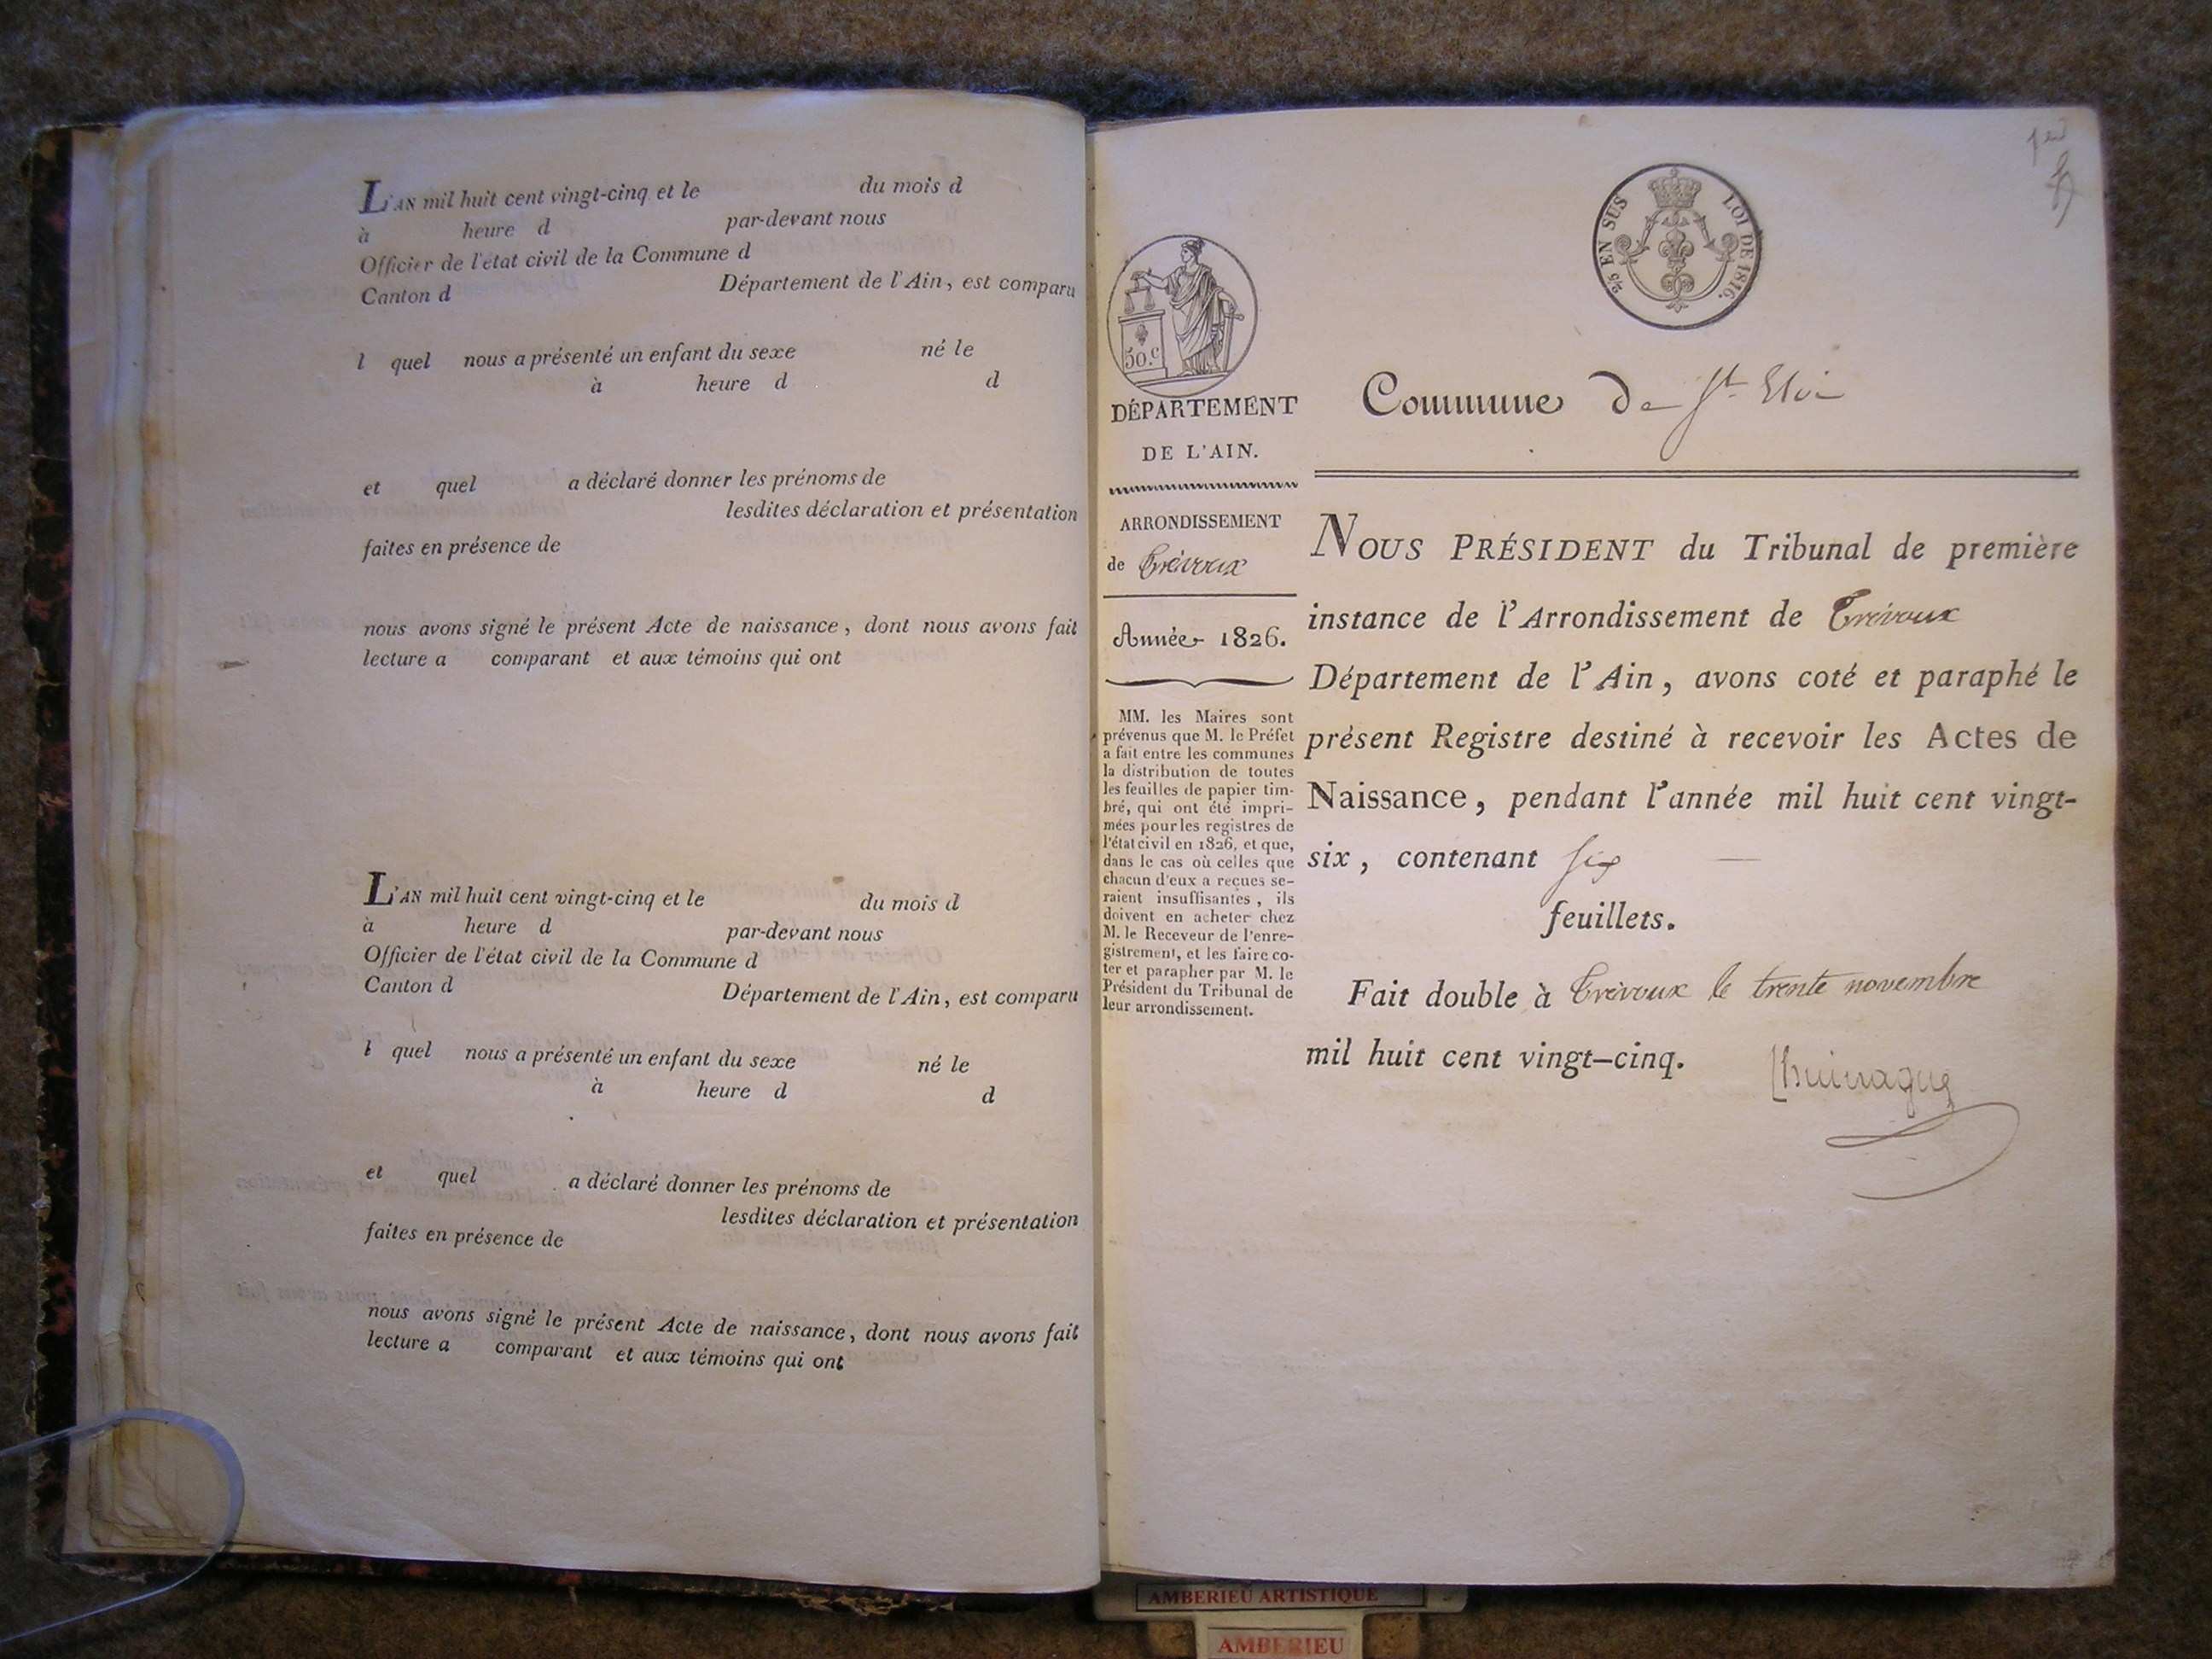 L'AN mil huit cent vingt-cinq et le du mois d
à heure d par-devant nous
Officier de l'état civil de la Commune d
Canton d Département de l'Ain, est comparu
l quel nous a présenté un enfant du sexe né le
à heure d d
et quel a déclaré donner les prénoms de
lesdites déclaration et présentation
faites en présence de
nous avons signé le présent Acte de naissance, dont nous avons fait
lecture a comparant et aux témoins qui ont
L'AN mil huit cent vingt-cinq et le du mois d
à heure d par-devant nous
Officier de l'état civil de la Commune d
Canton d Département de l'Ain, est comparu
l quel nous a présenté un enfant du sexe né le
à heure d d
et quel a déclaré donner les prénoms de
lesdites déclaration et présentation
faites en présence de
nous avons signé le présent Acte de naissance, dont nous avons fait
lecture a comparant et aux témoins qui ont
50.c
DÉPARTEMENT
DE L'AIN.
ARRONDISSEMENT
de Trévoux
Année 1826.
MM. les Maires sont
prévenus que M. le Préfet
a fait entre les communes
la distribution de toutes
les feuilles de papier tim-
bré, qui ont été impri-
mées pour les registres de
l'état civil en 1826, et que,
dans le cas où celles que
chacun d'eux a reçues se-
raient insuffisantes, ils
doivent en acheter chez
M. le Receveur de l'enre-
gistrement, et les faire co-
ter et parapher par M. le
Président du Tribunal de
leur arrondissement.
2/5 EN SUS LOI DE 1816.
Commune de St Eloi
NOUS PRÉSIDENT du Tribunal de première
instance de l'Arrondissement de Trévoux
Département de l'Ain, avons coté et paraphé le
présent Registre destiné à recevoir les Actes de
Naissance, pendant l'année mil huit cent vingt-
six, contenant six
feuillets.
Fait double à Trévoux le trente novembre
mil huit cent vingt-cinq.
AMBERIEU ARTISTIQUE
AMBERIEU